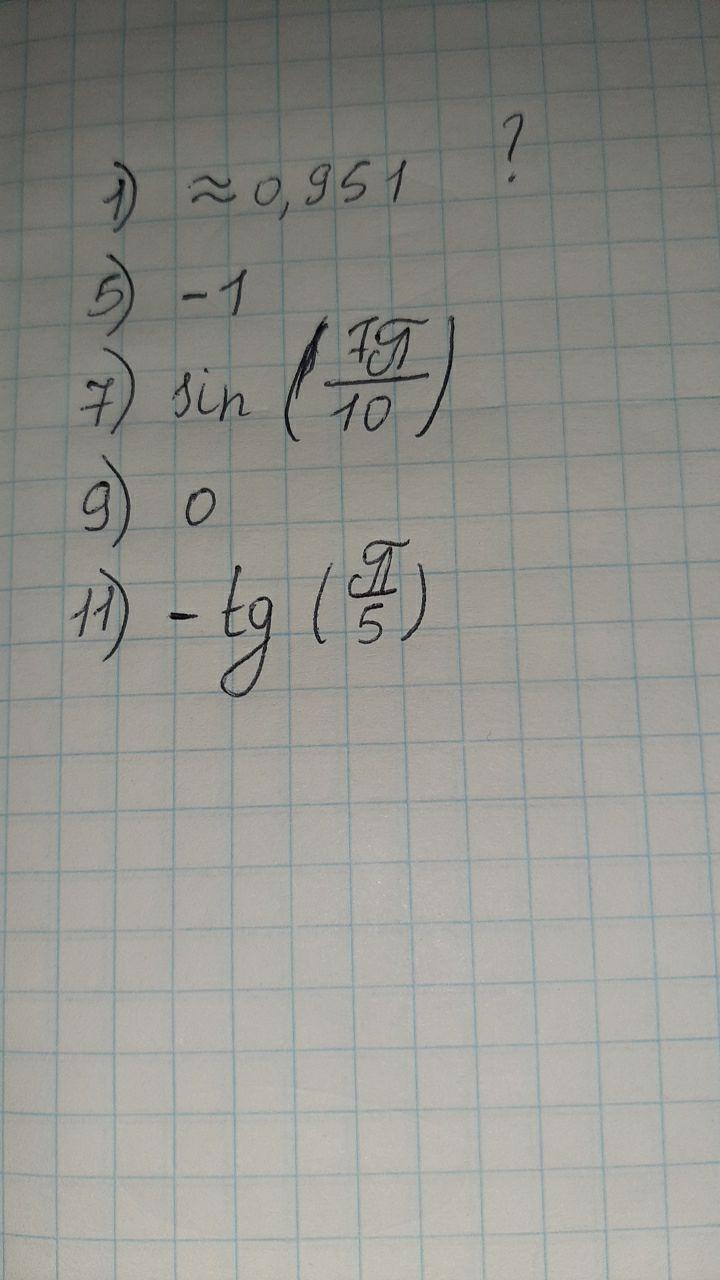 1) ≈ 0,951 ?
5) -1
7) sin (7π/10)
9) 0
11) - tg (π/5)